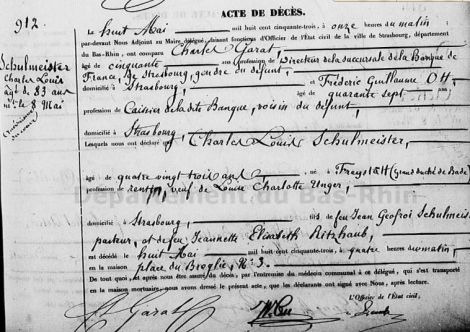 ACTE DE DÉCÈS.
912.
Schulmeister
Charles Louis
agé de 83 ans
m.t le 8 Mai
Le huit Mai mil huit cent cinquante-trois, à onze heures du matin
par-devant Nous Adjoint au Maire délégué, faisant fonctions d'Officier de l'État civil de la ville de Strasbourg, département
du Bas-Rhin, ont comparu Charles Garat,
âgé de cinquante ans profession de Directeur de la succursale de la Banque de
France, de Strasbourg, gendre du défunt,
domicilié à Strasbourg, et Frédéric Guillaume Ott,
âgé de quarante sept ans,
profession de Caissier de la dite Banque, voisin du défunt,
domicilié à Strasbourg,
Lesquels nous ont déclaré que Charles Louis Schulmeister,
âgé de quatre vingt trois ans, né à Freystätt (grand duché de Bade)
profession de rentier, veuf de Louise Charlotte Unger,
Département du Bas-Rhin
domicilié à Strasbourg, fils de feu Jean Geofroi Schulmeister
pasteur, et de feu Jeannette Elisabeth Ritzhaub,
est décédé le huit Mai mil huit cent cinquante-trois, à quatre heures du matin,
en la maison place du Broglie, N.º 3.
De tout quoi, et après nous être assuré du décès, par l'entremise du médecin communal à ce délégué, qui s'est transporté
en la maison mortuaire, nous avons dressé le présent acte, que les déclarants ont signé avec Nous, après lecture.
L'Officier de l'État civil,
Garat